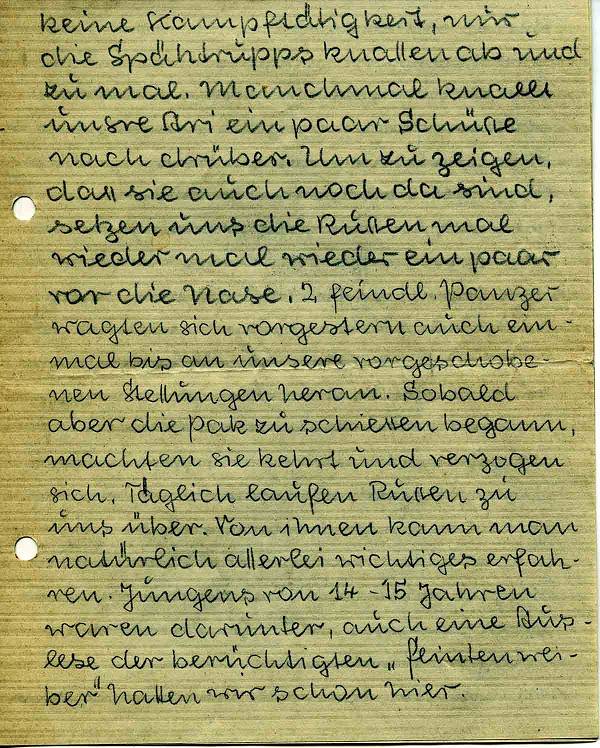 keine Kampftätigkeit, nur
die Spähtrupps knallen ab und
zu mal. Manchmal knallt
unsre Ari ein paar Schüsse
nach drüber. Um zu zeigen,
dass sie auch noch da sind,
setzen uns die Russen mal
wieder mal wieder ein paar
vor die Nase. 2 feindl. Panzer
wagten sich vorgestern auch ein-
mal bis an unsere vorgeschobe-
nen Stellungen heran. Sobald
aber die Pak zu schiessen begann,
machten sie kehrt und verzogen
sich. Täglich laufen Russen zu
uns über. Von ihnen kann man
natürlich allerlei wichtiges erfah-
ren. Jungens von 14-15 Jahren
waren darunter, auch eine Aus-
lese der berüchtigten „flintenwei-
ber" hatten wir schon hier.